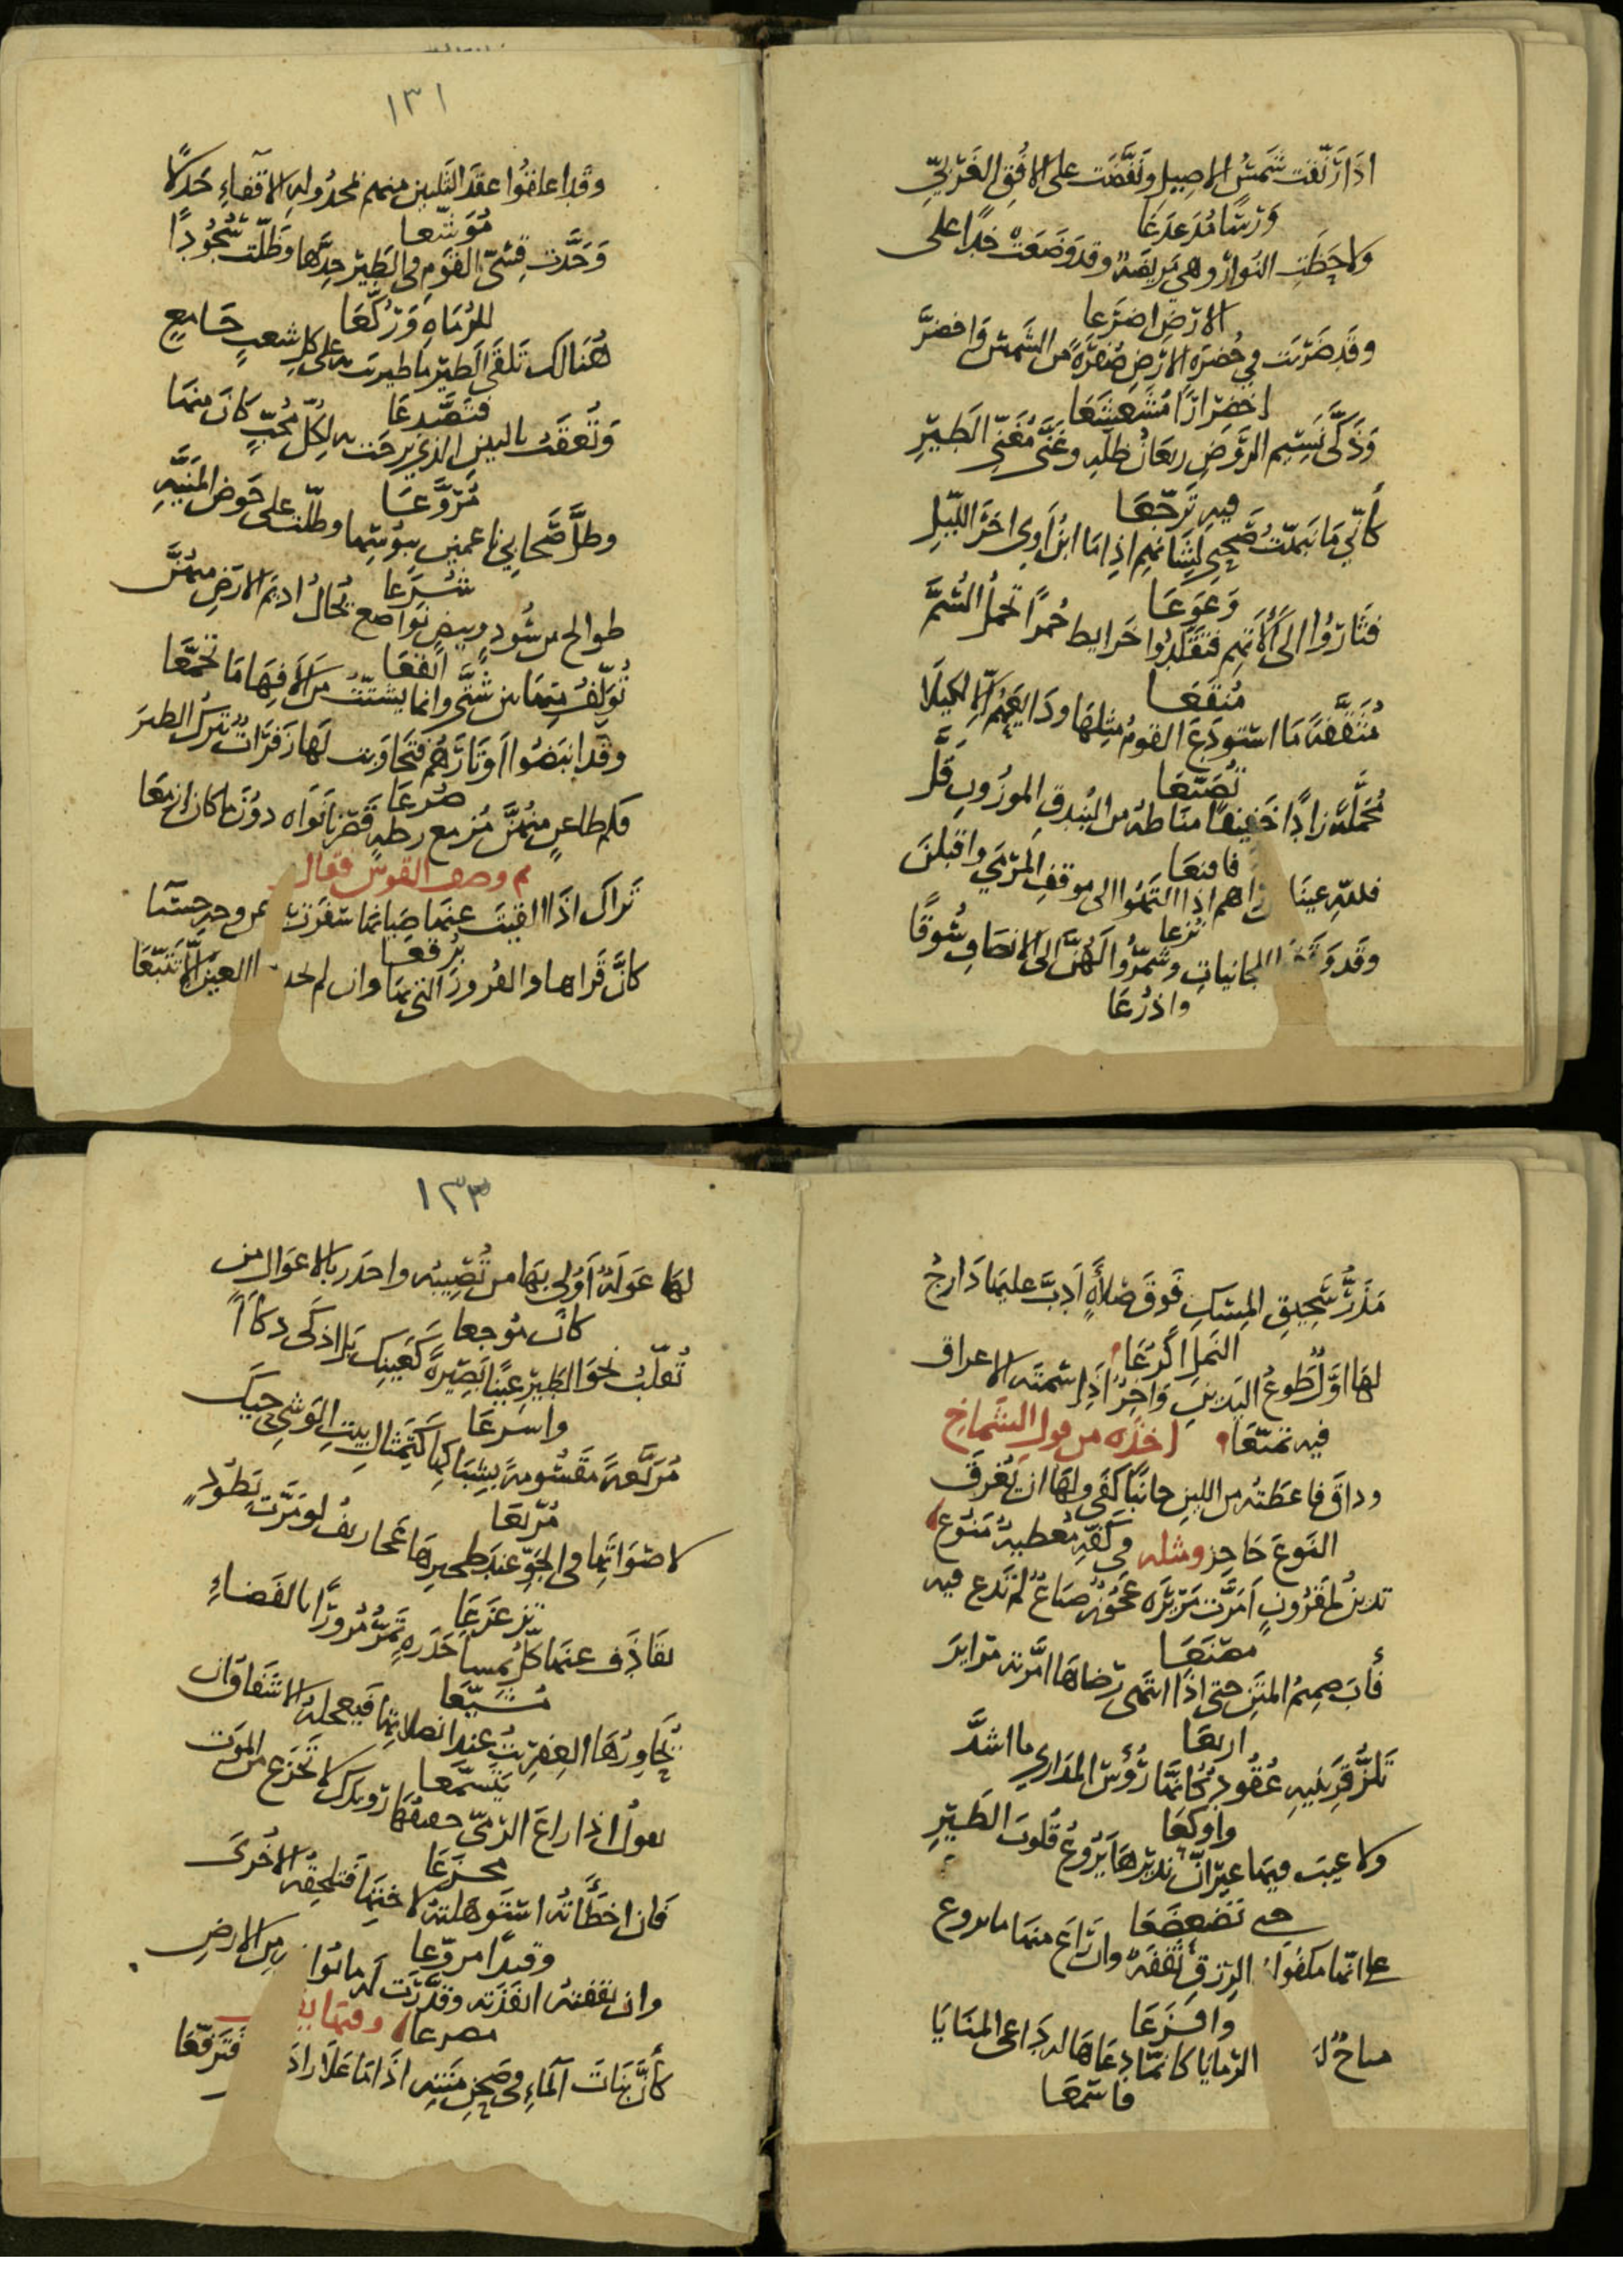 اذَا رَنّقت شَمسُ الاصِيلِ ونَفَّضَت على الافُقِ الغَربيّ
وَرسًا مُدَعدَعَا
ولاحَظَتِ النوارَ وهي مَرِيضَةٌ وقد وَضَعَتْ خدًا على
الارضِ اضرَعا
وقد ضَربَت في خُضرَةِ الارضِ صُفرَةٌ من الشَمس فاخضرَّ
اخضِرَارًا مُشَعشَعَا
وَذَكَّى نَسِيم الرَّوضِ رَيعَانُ ظلّهِ وغَنَّى مُغَنّي الطَيرِ
فيهِ تَرَجّعَا
كأنّي مَا نَبهّتُ صَحبِي لِشَانهِم اذا مَا ابنُ آوى اخرَ الليلِ
وَعوَعَا
فثَارُوا الى آلاتهِم فتقَلَّدُوا خَرايط حُمرًا تحملُ السُّمَّ
مُنقَعَا
مُثَقَّفةً مَا استودَعَ القومُ مثلِهَا ودَايعَهُم الا لِكَيلا
تُضَيّعَا
مُحَمَّلَةً زادًا خَفِيفًا مناطهُ من البُندقِ المورُوبِ قَلَّ
فاقنعَا
فللهِ عينَا اهم اذا انتَهُوا الى موقفِ المَرمَى واقبلنَ
نُزعا
وقَد وَ للحانيات وشَمّرُوا لَهُنَّ الى الانصَافِ سُوقًا
واذرُعَا
١٣١
وقد اعلقُوا عقدَ الثَلثين منهم بمَجدُولهِ الاقفاءِ جَدلًا
مُوَشّعا
وَجَدَّت قِسّي القَومِ في الطَيرِ جِدَّها وظَلّت سُجُودًا
للرُمَاةِ وَرُكَّعَا
هُنَالك تَلقَى الطَير مَا طيرت به على كل شعبٍ جَامعٍ
فتَصَدَّعَا
وَتُعقَبُ بالبينِ الذي برحَت به لِكُلّ مُحبٍّ كانَ منهَا
مُرَوَّعَا
وظلَّ صَحابي ناعمينَ ببُوسِها وظلّت على حَوضِ المَنيّةِ
شُرَّعا
طوالحَ من سُودٍ وبيضٍ نَواصعٍ تخالُ اديم الارضِ منهُنَّ
ابقعَا
تُؤلّفُ منهَا بين شَتَّى وانما يُشتّتُ من آلافهَا مَا تجَمَّعَا
وقد انبَضُوا اوتَارَهُم فتَجَاوَبت لهَا زَفَرَاتٌ تتركُ الطيرَ
صُرعَا
فكم ظاعنٍ منهُنَّ مُزمع رحلةٍ قَصَرنَا نَوَاه دونَ ما كان ازمعَا
ثم وصف القوس فقال
تَراكَ اذَا القيتَ عنهَا ضِيانهَا سَفَرت عن وجه حسنا
بُرقعَا
كأنَّ قَراها والفُرورَ التي بهَا وان لم تجد العين الا تَتبّعَا
مَذَرُّ سَحِيقِ المِسكِ فَوقَ صَلاَةٍ ادبَّ عليهَا دَارجُ
النَملِ اكرُعَا
لهَا اوَّلٌ طَوعُ اليَدينِ واخِرٌ اذَا سُمتَه الاعراق
فيه تمَنّعَا اخذه من قول الشماخ
وداقَ فاعطَتهُ من اللينِ جانبًا كفَى ولهَا ان يُغرقَ
النَوعَ حَاجز ومثله في كَفّهِ مُعطيةٌ مَنُوع
تدينُ لمَقرُونٍ امَرَّت مَرِيرَه عَجُوزٌ صَنَاعٌ لم تَدع فيه
مصنَعَا
تأبّ صميمُ المتنِ حتى اذَا انتهى رضَاهَا امَرَّته مَرايرَ
اربعَا
تَلزُّ قَرينَيهِ عُقُودٌ كانَها رُؤُس المدَاري مَا اشدَّ
واوكعَا
ولا عيبَ فيهَا غيرَ انّ نَذيرَهَا يَرُوعُ قُلُوبَ الطَيرِ
حتى تضعضَعَا
على انّها مكفُوَّة الرزقِ ثقفةٌ وان رَاعَ منهَا ما يروع
وافزَعَا
متاحٌ لها الرمَايَا كانَّما دعَاهَا له دَاعي المنَايَا
فاسمعَا
١٣٣
لها عَولَةٌ اوَلى بهَا من تُصِيبُه واجدَر بالاعوال من
كانَ مُوجعا
تُقلّبُ نحوَ الطَيرِ عينًا بَصِيرةً كعينِك بل اذكَى ذكاءً
واسرعَا
مُرَبَّعةً مقسُومةً بِشِبَاكِها كتمثَالِ بيتِ الوَشي حيك
مُربعَا
لاصوَاتهَا في الجَوِّ عند طحيرها عَجاريفُ لو مَرَّت بطَودٍ
تزعزَعَا
تقَاذَف عنهَا كلُ ملسا حَدرةٍ تَمُرُّ مُرُورًا بالفَضاءِ
مُشَيَّعَا
يُحاورُهَا العِفرِيتُ عندَ انصلاتهَا فيعجلهُ الاشفاقُ ان
يتسمَّعا
تقولُ اذا راعَ الرّمىّ حفيفُهَا رويدَك لا تجزع من الموت
مجزَعَا
فان اخطَأَتهُ استَوهَلتهُ لاختِهَا فتلحقُه الاخرى
وقيدًا مروّعا
وان ثقفتهُ انفَذَته وقدَّرَت له ما نوا من الارض
مصرعا وفيها
كأنَّ بَنَات الماءِ في صَحنِ مَتنهِ اذَا مَا عَلا راد فتَرَفّعَا